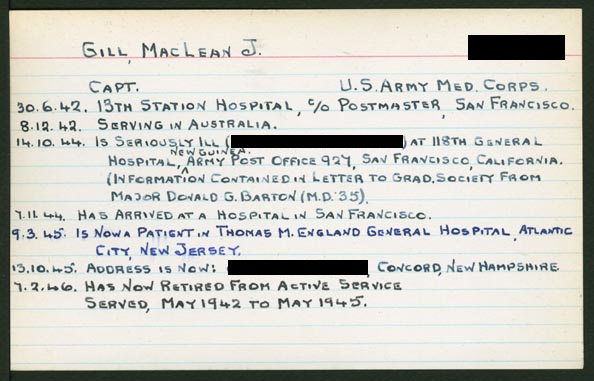 GILL, MACLEAN J.
CAPT. U.S. ARMY MED. CORPS.
30.6.42. 13TH STATION HOSPITAL, c/o POSTMASTER, SAN FRANCISCO.
8.12.42. SERVING IN AUSTRALIA.
14.10.44. IS SERIOUSLY ILL ( ) AT 118TH GENERAL
NEW GUINEA.
HOSPITAL, ARMY POST OFFICE 927, SAN FRANCISCO, CALIFORNIA.
(INFORMATION CONTAINED IN LETTER TO GRAD. SOCIETY FROM
MAJOR DONALD G. BARTON (M.D. '35).
7.11.44. HAS ARRIVED AT A HOSPITAL IN SAN FRANCISCO.
9.3.45. IS NOW A PATIENT IN THOMAS M. ENGLAND GENERAL HOSPITAL, ATLANTIC
CITY, NEW JERSEY.
13.10.45. ADDRESS IS NOW: , CONCORD, NEW HAMPSHIRE
7.2.46. HAS NOW RETIRED FROM ACTIVE SERVICE
SERVED, MAY 1942 TO MAY 1945.